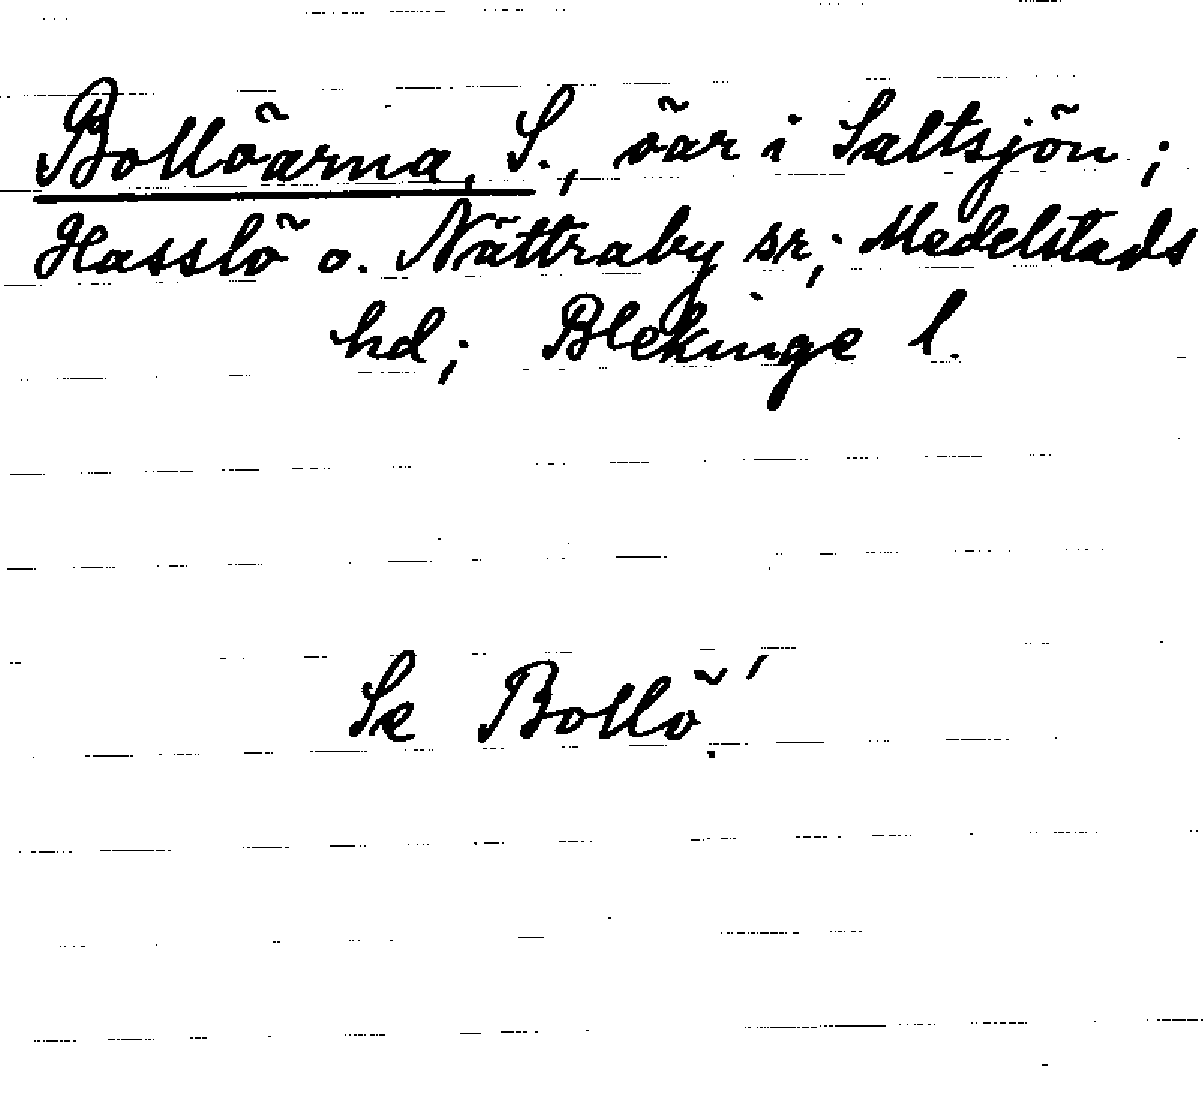 Bollöarna, S., öar i Saltsjön;
Hasslö o. Nättraby sr; Medelstads
hd; Blekinge l.
Se Bollö.